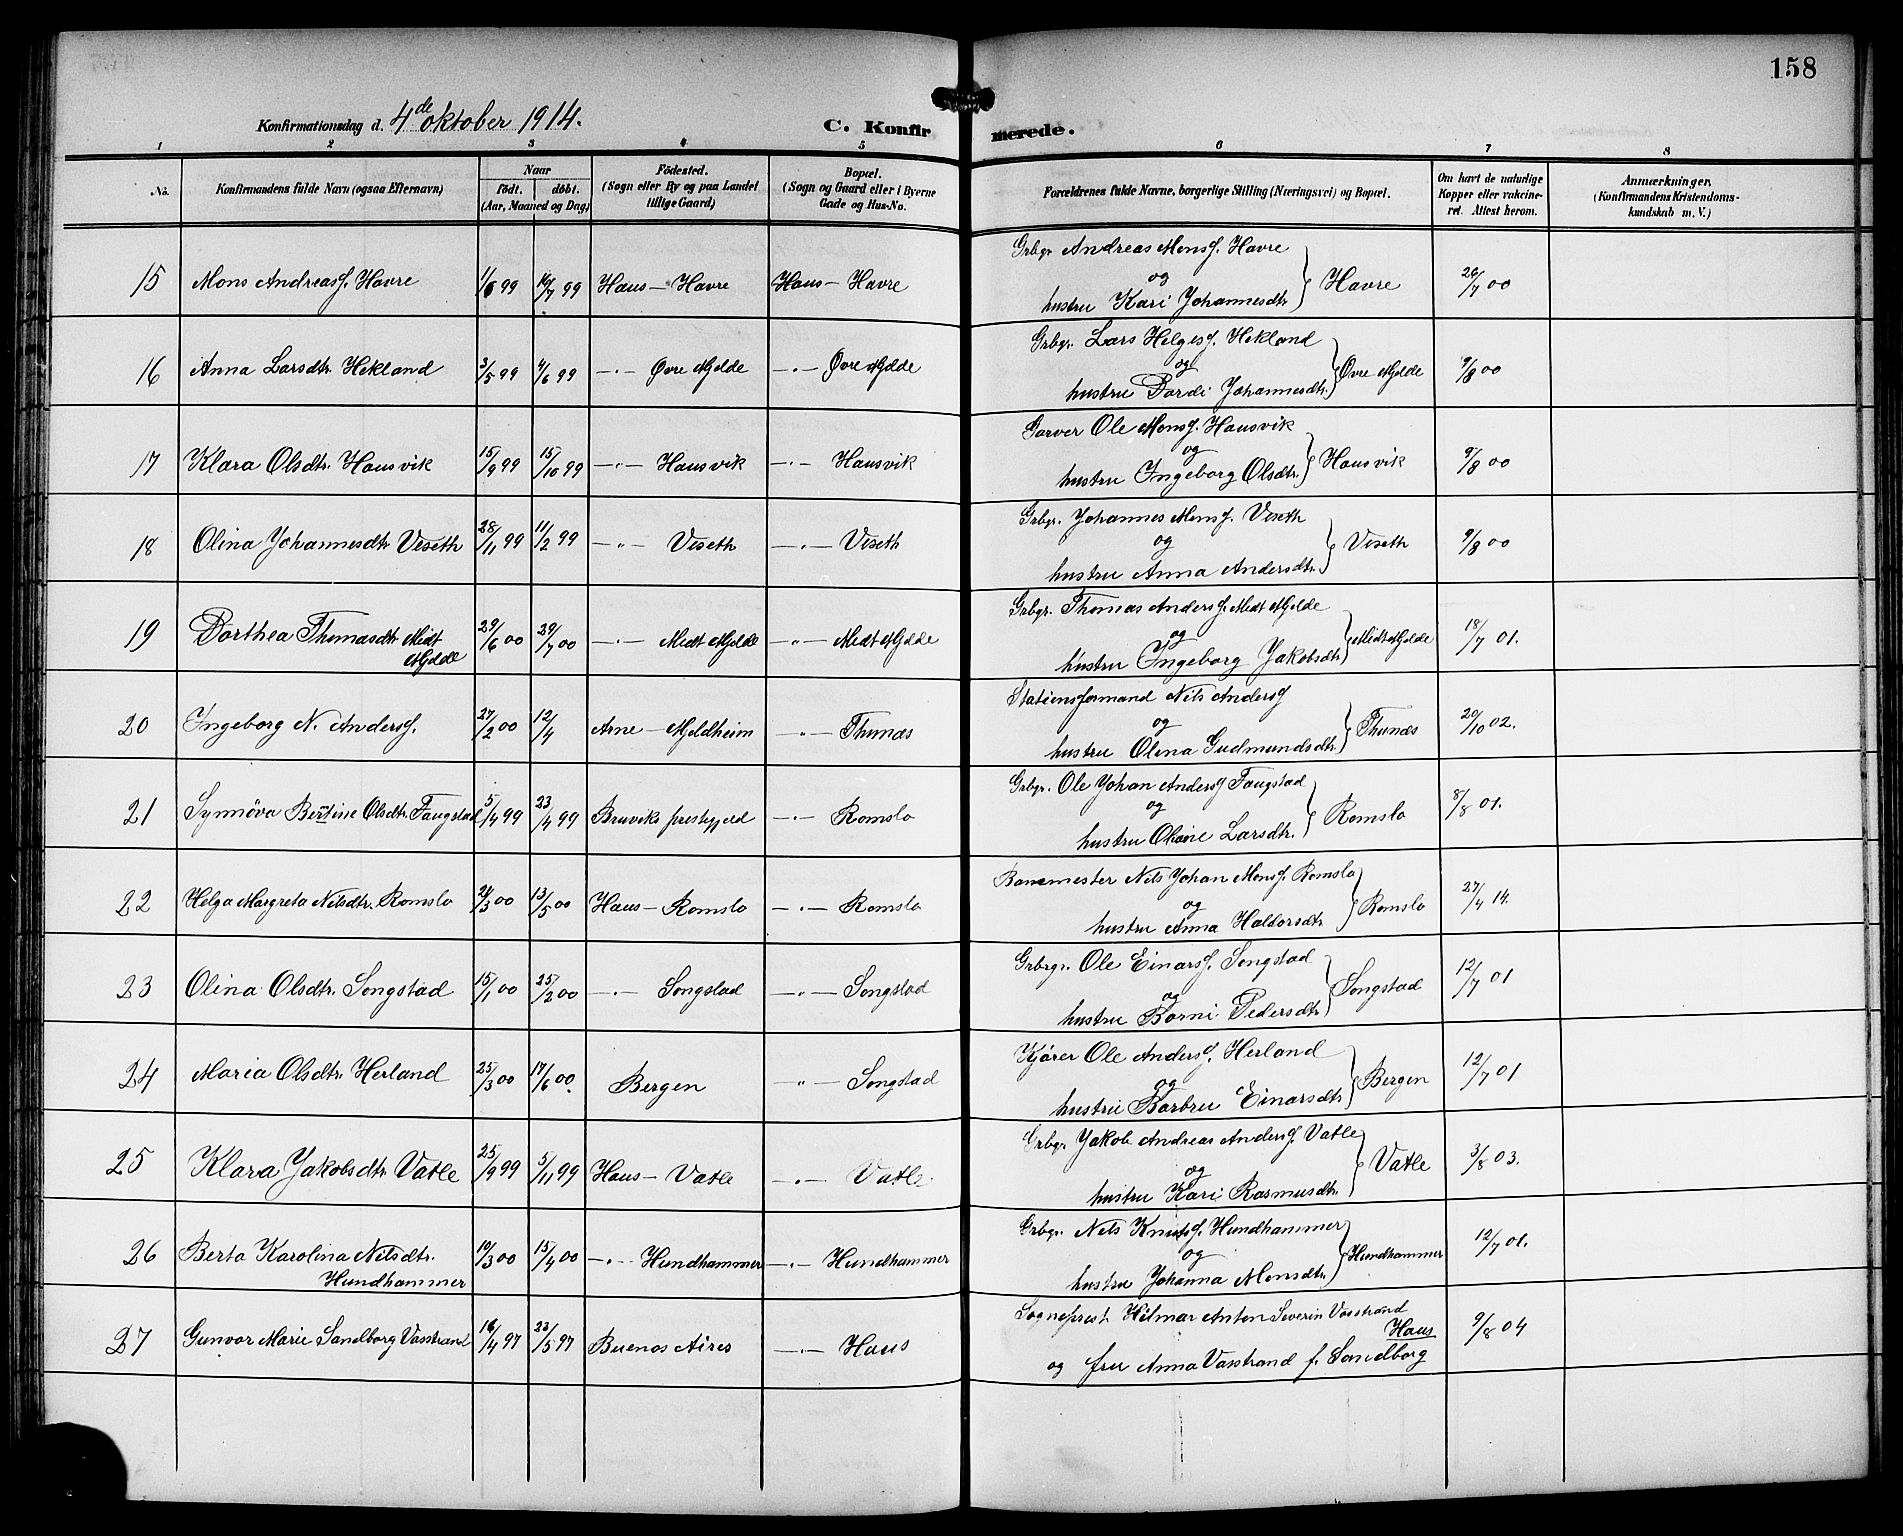 158
Konfirmationsdag d. 4de oktober 1914.
C. Konfirmerede.
1 2 3 4 5 6 7 8
No. Konfirmandens fulde Navn (ogsaa Efternavn) Naar födt. döbt. (Aar, Maaned og Dag) Födested. (Sogn eller By og paa Landet tillige Gaard) Bopæl. (Sogn og Gaard eller i Byerne Gade og Hus-No. Forældrenes fulde Navne, borgerlige Stilling (Næringsvei) og Bopæl. Om havt de naturlige Kopper eller vakcineret. Attest herom. Anmærkninger. (Konfirmandens Kristendomskundskab m. V.)
15 Mons Andreasf. Havre 1/6 99 16/7 99 Haus — Havre Haus — Havre Grbgr. Andreas Monsf. Havre
og
hustru Kari Johannesdtr. } Havre 26/7 00
16 Anna Larsdtr. Hekland 3/5 99 4/6 99 —〃— Øvre Mjelde —〃— Øvre Mjelde Grbgr. Lars Helgesf. Hekland
og
hustru Dordi Johannesdtr. } Øvre Mjelde 9/8 00
17 Klara Olsdtr. Hausvik 15/9 99 15/10 99 —〃— Hausvik —〃— Hausvik Garver Ole Monsf. Hausvik
og
hustru Ingeborg Olsdtr. } Hausvik 9/8 00
18 Olina Johannesdtr Viseth 28/11 99 11/2 99 —〃— Viseth —〃— Viseth Grbgr. Johannes Monsf. Viseth
og
hustru Anna Andersdtr. } Viseth 9/8 00
19 Dorthea Thomasdtr. Midt Mjelde 29/6 00 29/7 00 —〃— Midt Mjelde —〃— Midt Mjelde Grbgr. Thomas Andersf. Midt Mjelde
og
hustru Ingeborg Jakobsdtr. } Midt Mjelde 18/7 01.
20 Ingeborg N. Andersf. 27/2 00 12/4 Arne — Mjeldheim —〃— Thunæs Stationsformand Nils Andersf
og
hustru Olina Gudmundsdtr. } Thunæs 20/10 02.
21 Synnöva Bertine Olsdtr. Faugstad 5/4 99 23/4 99 Bruviks prestegjeld —〃— Romslo Grbgr. Ole Johan Andersf Faugstad
og
hustru Larsdtr. } Romslo 8/8 01.
22 Helga Margreta Nilsdtr. Romslo 24/3 00 13/5 00 Haus — Romslo —〃— Romslo Banemester Nils Johan Monsf. Romslo
og
hustru Anna Haldorsdtr. } Romslo 27/4 14.
23 Olina Olsdtr. Songstad 15/1 00 25/2 00 —〃— Songstad —〃— Songstad Grbrgr. Ole Einarsf. Songstad
og
hustru Borni Pedersdtr } Songstad 12/7 01
24 Maria Olsdtr. Herland 25/3 00 17/6 00. Bergen 〃— Songstad Kjörer Ole Andersf. Herland
og
hustru Barbru Einarsdtr } Bergen 12/7 01
25 Klara Jakobsdtr. Vatle 25/9 99 5/11 99 Haus — Vatle —〃— Vatle. Grbgr. Jakob Andreas Andersf Vatle
og
hustru Kari Rasmusdtr. } Vatle 3/8 03.
26 Berta Karolina Nilsdtr. Hundhammer 19/3 00 15/4 00 —〃— Hundhammer —〃— Hundhammer Grbgr. Nils Knutsf. Hundhammer
og
hustru Johanna Monsdtr. } Hundhammer 12/7 01.
27 Gunvor Marie Sandborg Vasstrand 16/4 97 23/5 97 Buenos Aires —〃— Haus Sogneprest Hilmar Anton Severin Vasstrand
Haus
og fru Anna Vasstrand f. Sandborg 9/8 04